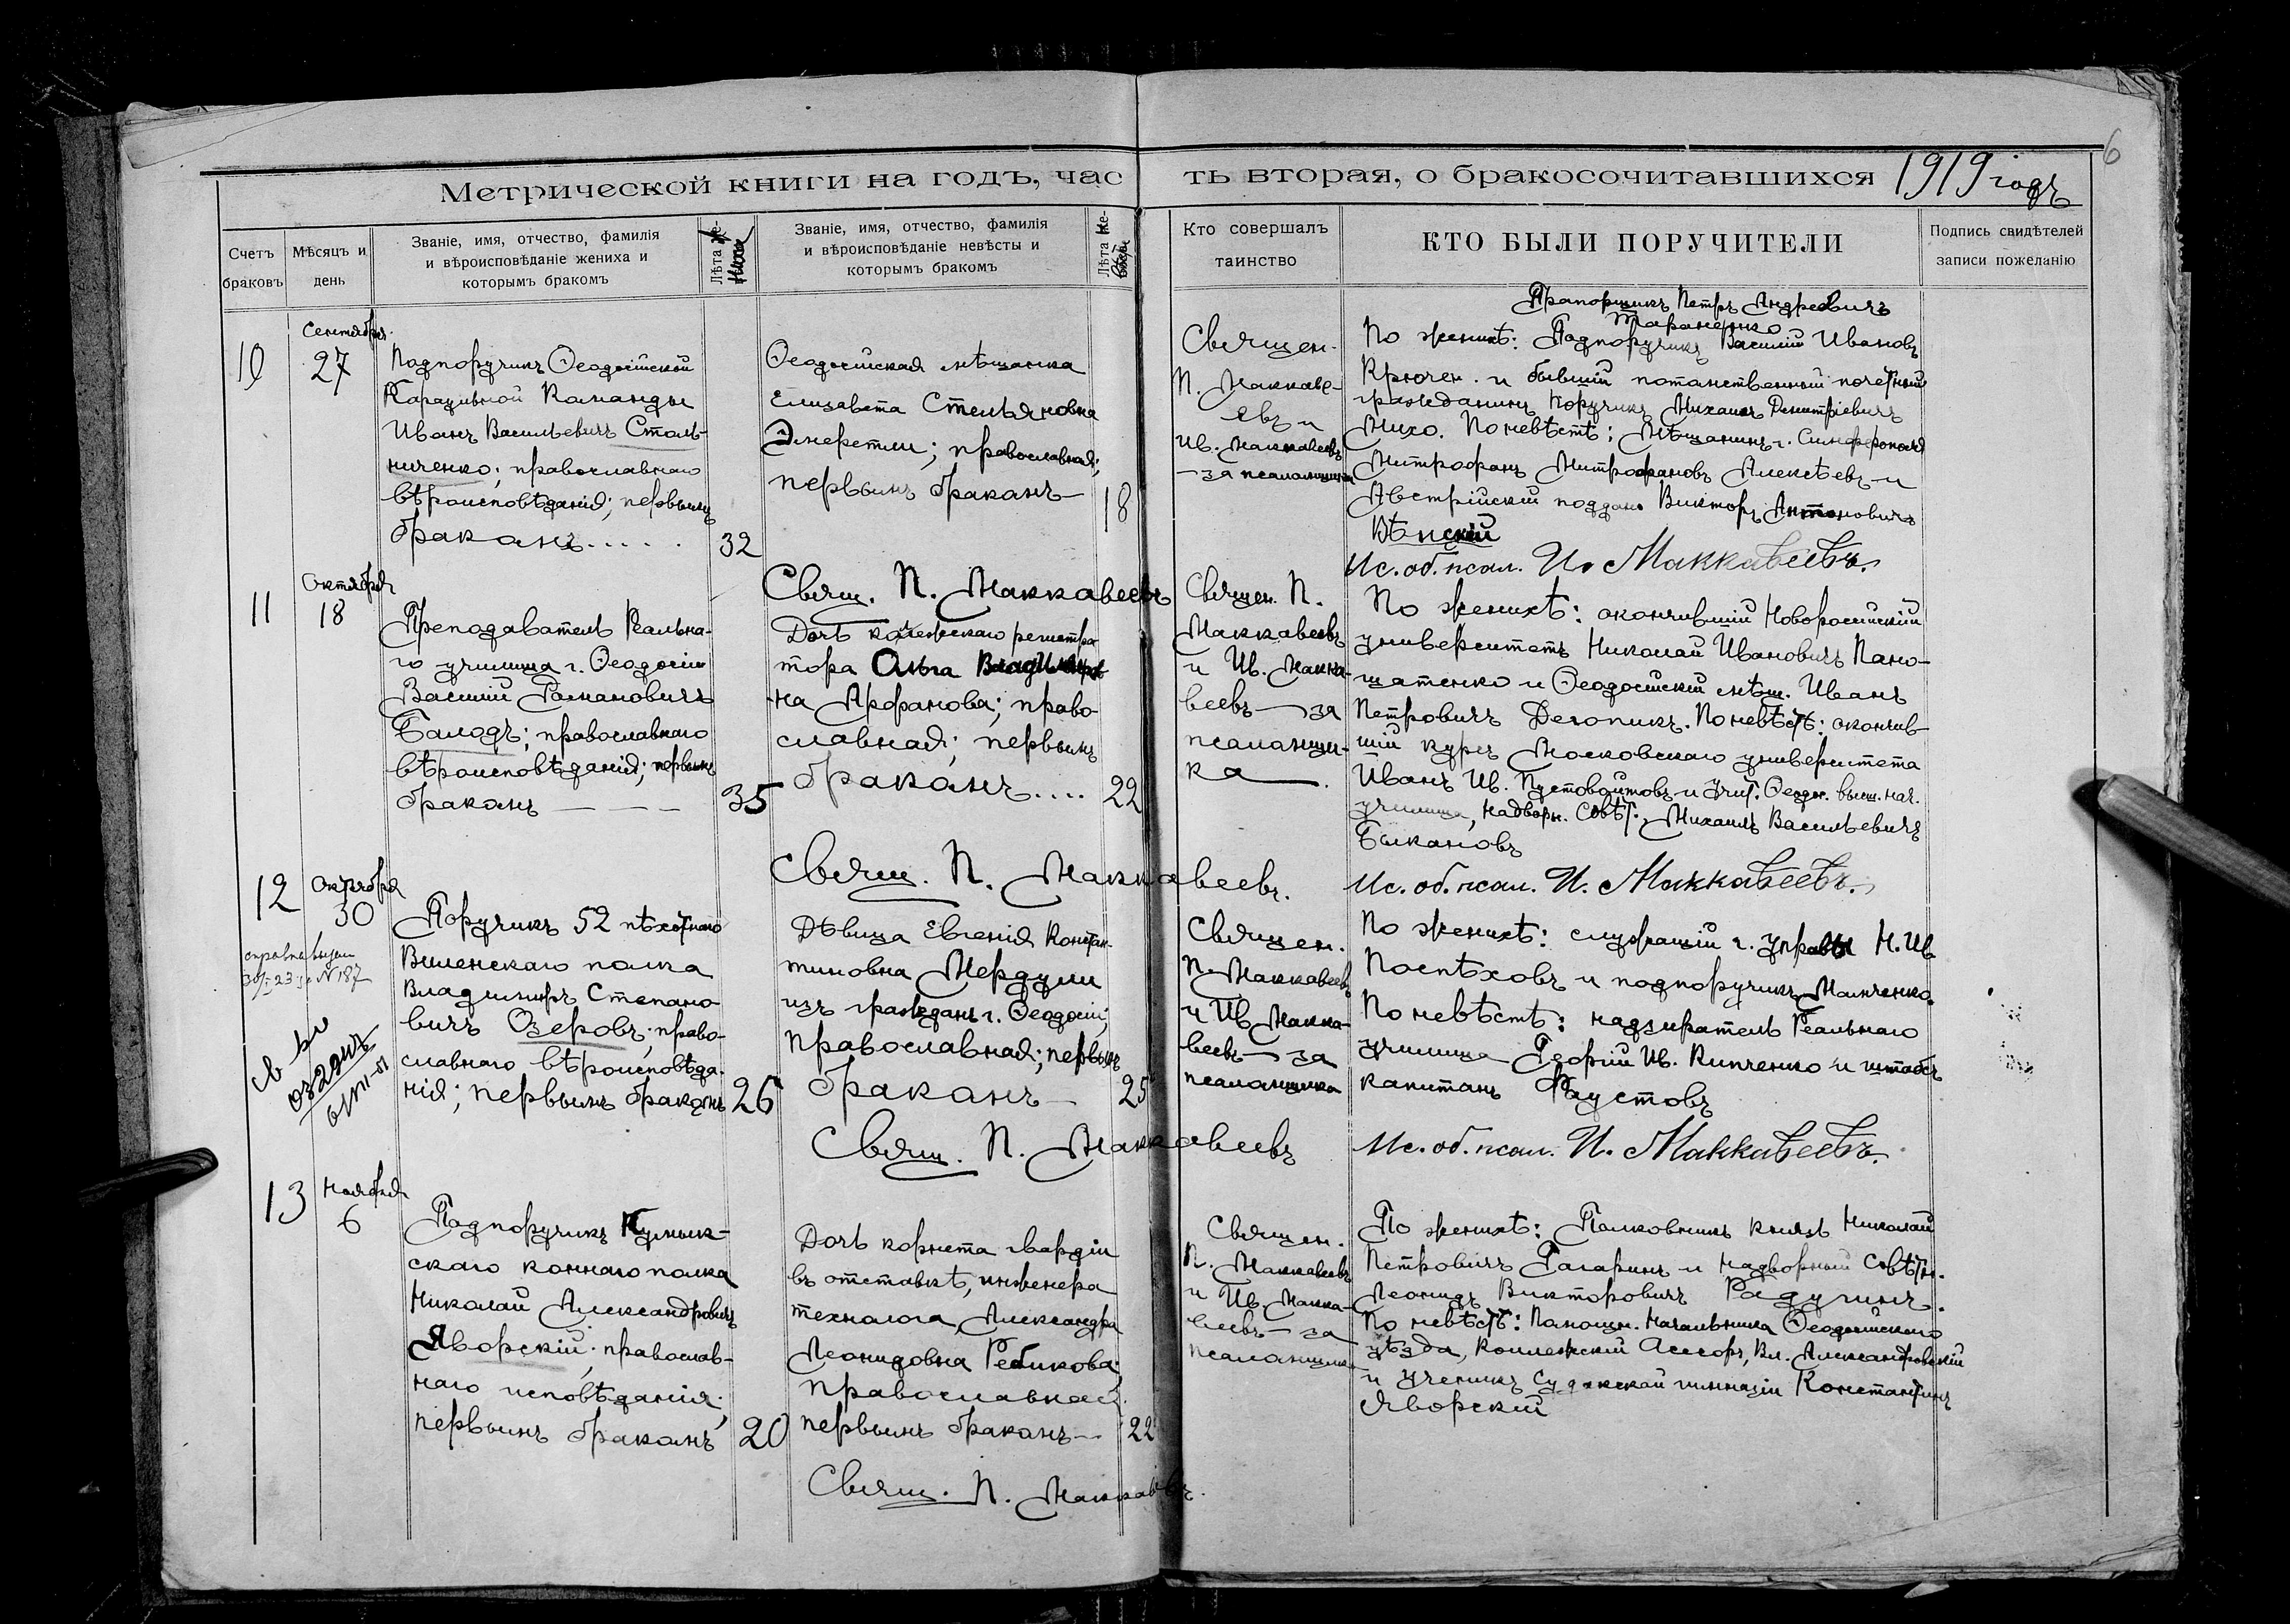 6
Метрической книги на годъ, часть вторая, о бракосочитавшихся 1919 годъ
Счетъ браковъ
Мѣсяцъ и день
Званіе, имя, отчество, фамилія
и вѣроисповѣданіе жениха и
которымъ бракомъ
Лѣта жениха
Званіе, имя, отчество, фамилія
и вѣроисповѣданіе невѣсты и
которымъ бракомъ
Лѣта
Кто совершалъ
таинство
КТО БЫЛИ ПОРУЧИТЕЛИ
Подпись свидѣтелей
записи пожеланію
10
Сентября
27
Подпоручикъ Ѳеодосійской
Караульной Команды
Иванъ Васильевичъ Сталь-
ниченко; православнаго
вѣроисповѣданія; первымъ
бракомъ.....
32
Ѳеодосійская мѣщанка
Елизавета Стельяновна
Эмеретли; православная;
первымъ бракомъ—
18
Свящ. П. Маккавеевъ
Священ.
П. Маккаве-
евъ и
Ив. Маккавеевъ
—за псаломщика
Прапорщикъ Петръ Андреевичъ
Тараненко
По женихѣ: Подпоручикъ Василій Ивановъ
Крючен. и бывшій потомственный почетный
гражданинъ Поручикъ Михаилъ Дмитріевичъ
Михо. По невѣстѣ: Мѣщанинъ г. Симферополя
Митрофанъ Митрофановъ Алексѣевъ и
Австрійскій поддан. Викторъ Антоновичъ
Вѣнскій
Ис. об. псал. И. Маккавеевъ.
11
Октября
18
Преподаватель Реально-
го училища г. Ѳеодосіи
Василій Романовичъ
Балодъ; православнаго
вѣроисповѣданія; первымъ
бракомъ — — —
35
Дочь колежскаго регистра
тора Ольга Владимиров
на Арфанова; право-
славная; первымъ
бракомъ....
22
Свящ. П. Маккавеевъ.
Священ. П.
Маккавеевъ
и Ив. Макка-
веевъ — за
псаломщи-
ка —.
По женихѣ: окончившій Новороссійскій
университетъ Николай Ивановичъ Пано-
щатенко и Ѳеодосійскій мѣщ. Иванъ
Петровичъ Дегопикъ. По невѣстѣ: окончив
шій курсъ Московскаго университета
Иванъ Ив. Пустовойтовъ и учит. Ѳеодос. высш. нач.
училища, надворн. Совѣт. Михаилъ Васильевичъ
Быкановъ
Ис. об. псал. И. Маккавеевъ.
12
Октября
30
справка выдан
№ 187
Поручикъ 52 пѣхотнаго
Виленскаго полка
Владимиръ Степано-
вичъ Озеровъ; право-
славнаго вѣроисповѣда-
нія; первымъ бракомъ
26
Дѣвица Евгенія Констан-
тиновна Мердули
изъ гражданъ г. Ѳеодосіи;
православная; первымъ
бракомъ —
25
Свящ. П. Маккавеевъ
Священ.
П. Маккавеевъ
и Ив. Макка-
веевъ — за
псаломщика
По женихѣ: служащій г. управы Н. Ив.
Поспѣховъ и подпоручикъ Матченко.
По невѣстѣ: надзиратель Реальнаго
училища Георгій Ив. Кипченко и штабсъ
капитанъ Фаустовъ
Ис. об. псал. И. Маккавеевъ.
13
Ноября
6
Подпоручикъ Кумык-
скаго коннаго полка
Николай Александровичъ
Яворскій; православ-
наго исповѣданія;
первымъ бракомъ
20
Дочь корнета гвардіи
въ отставкѣ, инженера
технолога, Александра
Леонидовна Ребикова;
православная;
первымъ бракомъ—
22
Свящ. П. Маккавеевъ.
Священ.
П. Маккавеевъ
и Ив. Макка-
веевъ — за
псаломщика
По женихѣ: Полковникъ князь Николай
Петровичъ Гагаринъ и надворный Совѣтн.
Леонидъ Викторовичъ Радугинъ.
По невѣстѣ: Помощн. Начальника Ѳеодосійскаго
уѣзда, Коллежскій Асессоръ, Вл. Александровскій
и ученикъ Судакской гимназіи Константинъ
Яворскій